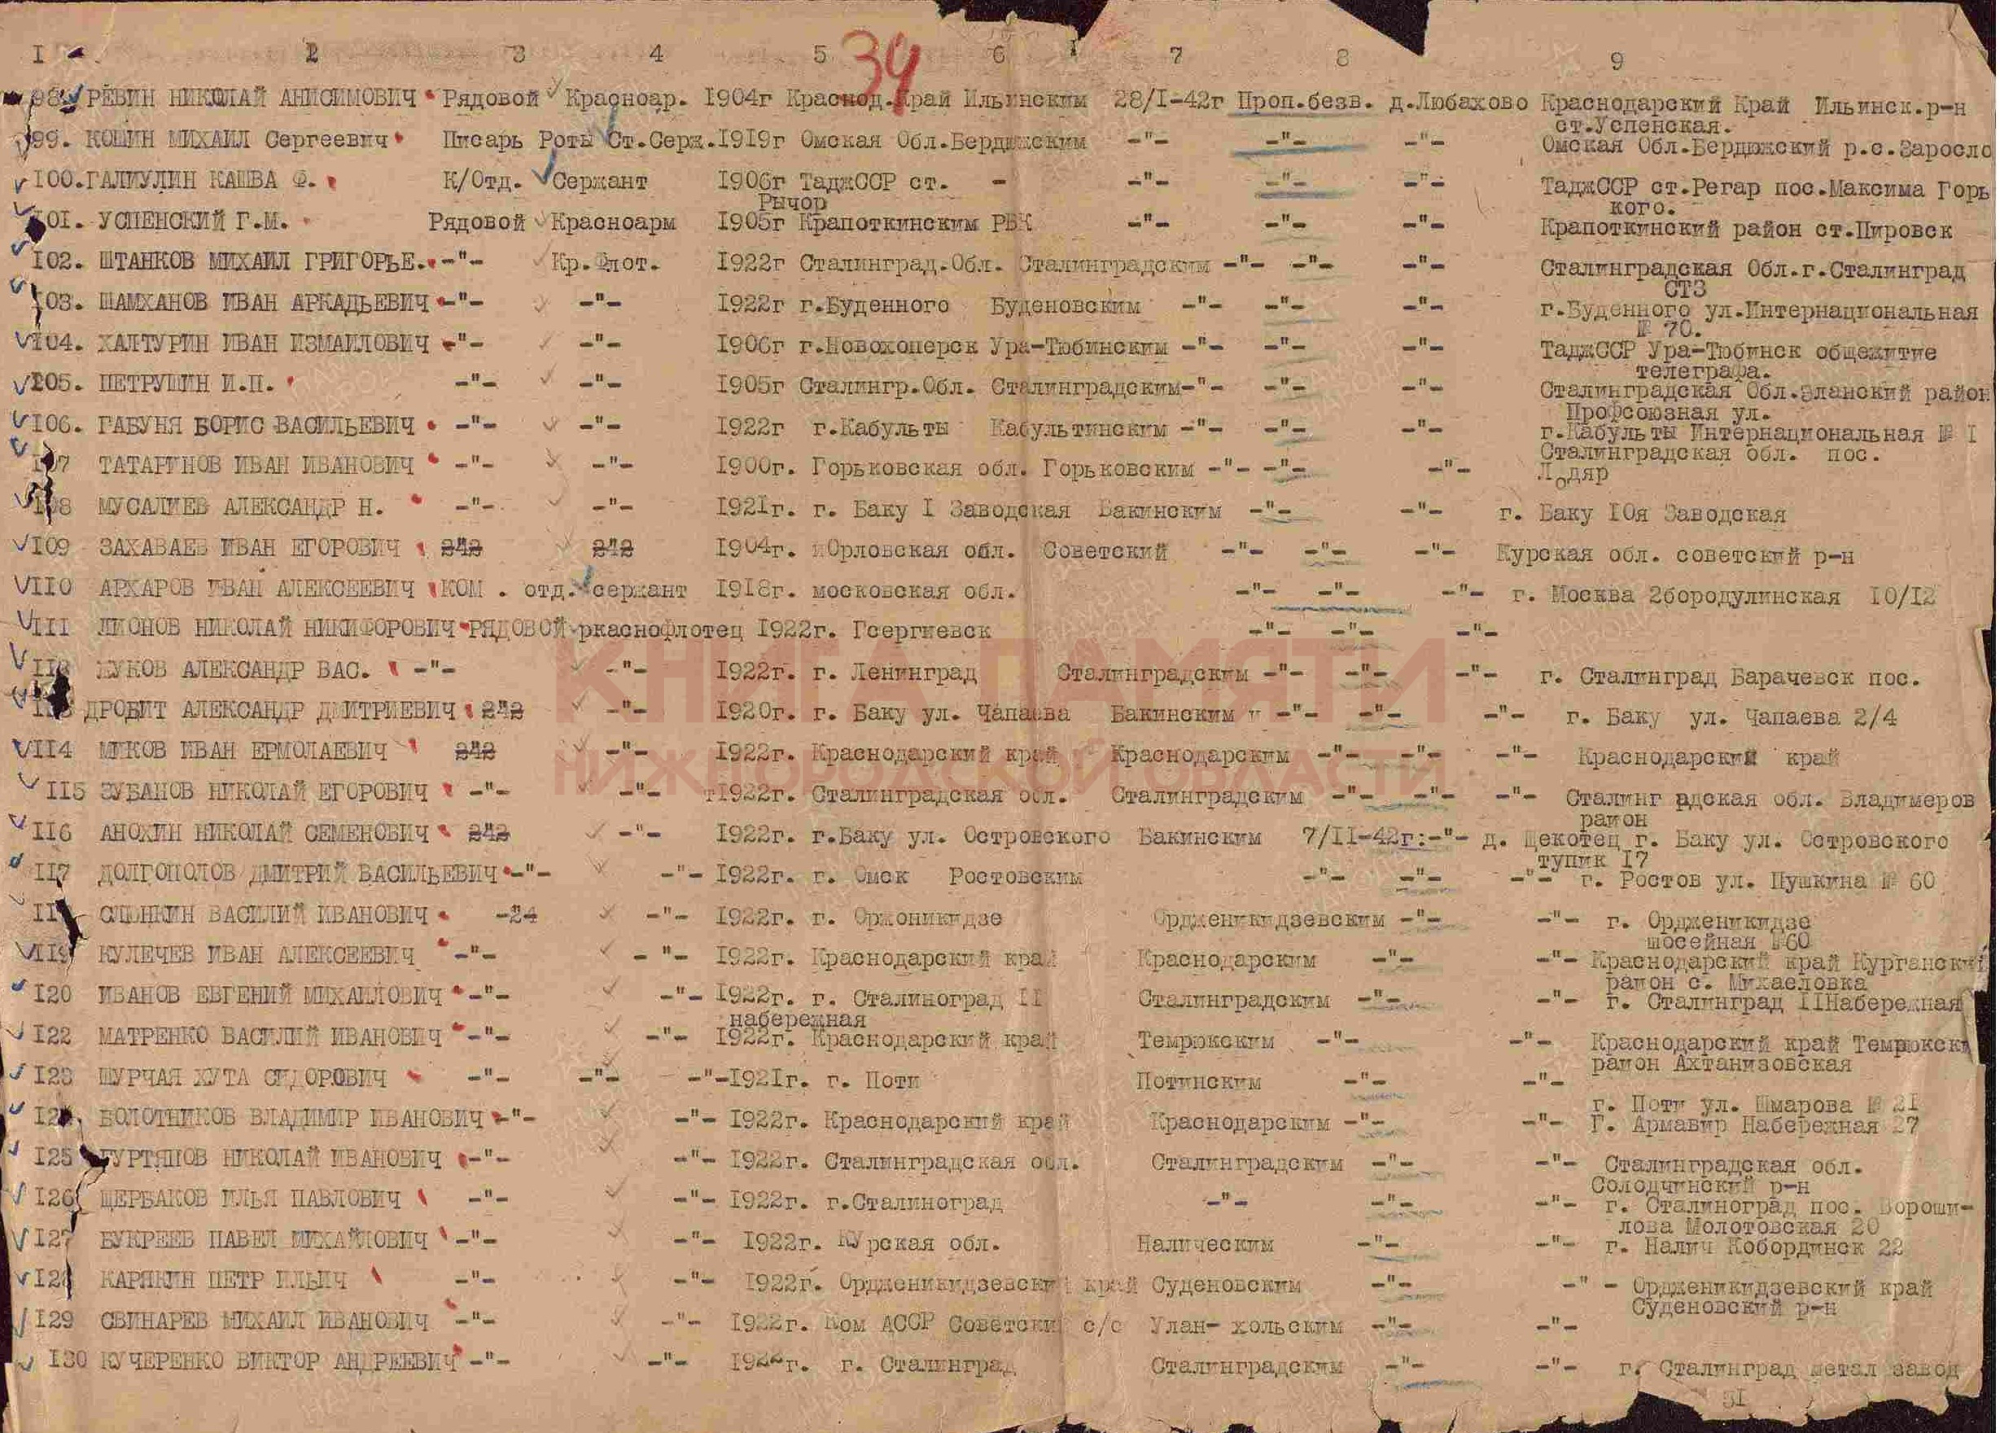 I 2 3 4 5 6 7 8 9
34
98. РЕВИН НИКОЛАЙ АНИСИМОВИЧ Рядовой Красноар. 1904г Краснод.Край Ильинским 28/I-42г Проп.безв. д.Любахово Краснодарский Край Ильинск.р-н
ст.Успенская.
99. КОШИН МИХАИЛ Сергеевич Писарь Роты Ст.Серж. 1919г Омская Обл.Бердюжским -"- -"- -"- Омская Обл.Бердюжский р.с.Заросло
I00. ГАЛИУЛИН КАШВА Ф. К/Отд. Сержант 1906г ТаджССР ст. - -"- -"- -"- ТаджССР ст.Регар пос.Максима Горь
Рычор кого.
I01. УСПЕНСКИЙ Г.М. Рядовой Красноарм 1905г Крапоткинским РВК -"- -"- -"- Крапоткинский район ст.Пировск
I02. ШТАНКОВ МИХАИЛ ГРИГОРЬЕ. -"- Кр.Флот. 1922г Сталинград.Обл. Сталинградским -"- -"- -"- Сталинградская Обл.г.Сталинград
СТЗ
I03. ШАМХАНОВ ИВАН АРКАДЬЕВИЧ -"- -"- 1922г г.Буденного Буденовским -"- -"- -"- г.Буденного ул.Интернациональная
№ 70.
I04. ХАЛТУРИН ИВАН ИЗМАИЛОВИЧ -"- -"- 1906г г.Новохоперск Ура-Тюбинским -"- -"- -"- ТаджССР Ура-Тюбинск общежитие
телеграфа.
I05. ПЕТРУШИН И.П. -"- -"- 1905г Сталингр.Обл. Сталинградским -"- -"- -"- Сталинградская Обл.Эланский район
Профсоюзная ул.
I06. ГАБУНЯ БОРИС ВАСИЛЬЕВИЧ -"- -"- 1922г г.Кабульты Кабультинским -"- -"- -"- г.Кабульты Интернациональная № I
I07 ТАТАРИНОВ ИВАН ИВАНОВИЧ -"- -"- 1900г. Горьковская обл. Горьковским -"- -"- -"- Сталинградская обл. пос.
Лодяр
I08 МУСАЛИЕВ АЛЕКСАНДР Н. -"- -"- 1921г. г. Баку I Заводская Бакинским -"- -"- г. Баку 10я Заводская
I09 ЗАХАВАЕВ ИВАН ЕГОРОВИЧ 242 242 1904г. Орловская обл. Советский -"- -"- -"- Курская обл. советский р-н
II0 АРХАРОВ ИВАН АЛЕКСЕЕВИЧ КОМ . отд. сержант 1918г. московская обл. -"- -"- -"- г. Москва 2бородулинская 10/12
III ЛИОНОВ НИКОЛАЙ НИКИФОРОВИЧ РЯДОВОЙ ркаснофлотец 1922г. Гсергиевск -"- -"- -"-
II2 ЖУКОВ АЛЕКСАНДР ВАС. -"- -"- 1922г. г. Ленинград Сталинградским -"- -"- -"- г. Сталинград Барачевск пос.
II3 ДРОБИТ АЛЕКСАНДР ДМИТРИЕВИЧ 242 -"- 1920г. г. Баку ул. Чапаева Бакинским -"- -"- -"- г. Баку ул. Чапаева 2/4
II4 МИКОВ ИВАН ЕРМОЛАЕВИЧ 242 -"- 1922г. Краснодарский край Краснодарским -"- -"- -"- Краснодарский край
II5 ЗУБАНОВ НИКОЛАЙ ЕГОРОВИЧ -"- -"- 1922г. Сталинградская обл. Сталинградским -"- -"- -"- Сталинг адская обл. Владимеров
район
II6 АНОХИН НИКОЛАЙ СЕМЕНОВИЧ 242 -"- 1922г. г.Баку ул. Островского Бакинским 7/II-42г: -"- д. Щекотец г. Баку ул. Островского
тупик 17
II7 ДОЛГОПОЛОВ ДМИТРИЙ ВАСИЛЬЕВИЧ -"- -"- 1922г. г. Омск Ростовским -"- -"- -"- г. Ростов ул. Пушкина № 60
II8 СЛЫНКИН ВАСИЛИЙ ИВАНОВИЧ -24 -"- 1922г. г. Оржоникидзе Ордженикидзевским -"- -"- г. Ордженикидзе
шосейная №60
II9 КУЛЕЧЕВ ИВАН АЛЕКСЕЕВИЧ -"- - "- 1922г. Краснодарский край Краснодарским -"- -"- Краснодарский край Курганский
район с. Михаеловка
I20 ИВАНОВ ЕВГЕНИЙ МИХАИЛОВИЧ -"- -"- 1922г. г. Сталиноград II Сталинградским -"- -"- г. Сталинград IIНабережная
набережная
I22 МАТРЕНКО ВАСИЛИЙ ИВАНОВИЧ -"- -"- 1922г. Краснодарский край Темрюкским -"- -"- Краснодарский край Темрюкски
район Ахтанизовская
I23 ШУРЧАЯ ХУТА СИДОРОВИЧ -"- -"- -"- 1921г. г. Поти Потинским -"- -"-
г. Поти ул. Шмарова № 21
I24 БОЛОТНИКОВ ВЛАДИМИР ИВАНОВИЧ -"- -"- 1922г. Краснодарский край Краснодарским -"- -"- Г. Армавир Набережная 27
I25 ГУРТЯПОВ НИКОЛАЙ ИВАНОВИЧ -"- -"- 1922г. Сталинградская обл. Сталинградским -"- -"- Сталинградская обл.
Солодчинский р-н
I26 ЩЕРБАКОВ ИЛЬЯ ПАВЛОВИЧ -"- -"- 1922г. г.Сталиноград -"- -"- -"- г. Сталиноград пос. Вороши-
лова Молотовская 20
I27 БУКРЕЕВ ПАВЕЛ МИХАЙЛОВИЧ -"- -"- 1922г. КУрская обл. Налическим -"- -"- г. Налич Кобординск 22
I28 КАРЯКИН ПЕТР ИЛЬИЧ -"- -"- 1922г. Ордженикидзевский край Суденовским -"- -" - Ордженикидзевский край
Суденовский р-н
I29 СВИНАРЕВ МИХАИЛ ИВАНОВИЧ -"- -"- 1922г. Ком АССР Советский с/с Улан- хольским -"- -"-
I30 КУЧЕРЕНКО ВИКТОР АНДРЕЕВИЧ -"- -"- 1922г. г. Сталинград Сталинградским -"- -"- г. Сталинград метал завод
31
КНИГА ПАМЯТИ
НИЖГОРОДСКОЙ ОБЛАСТИ